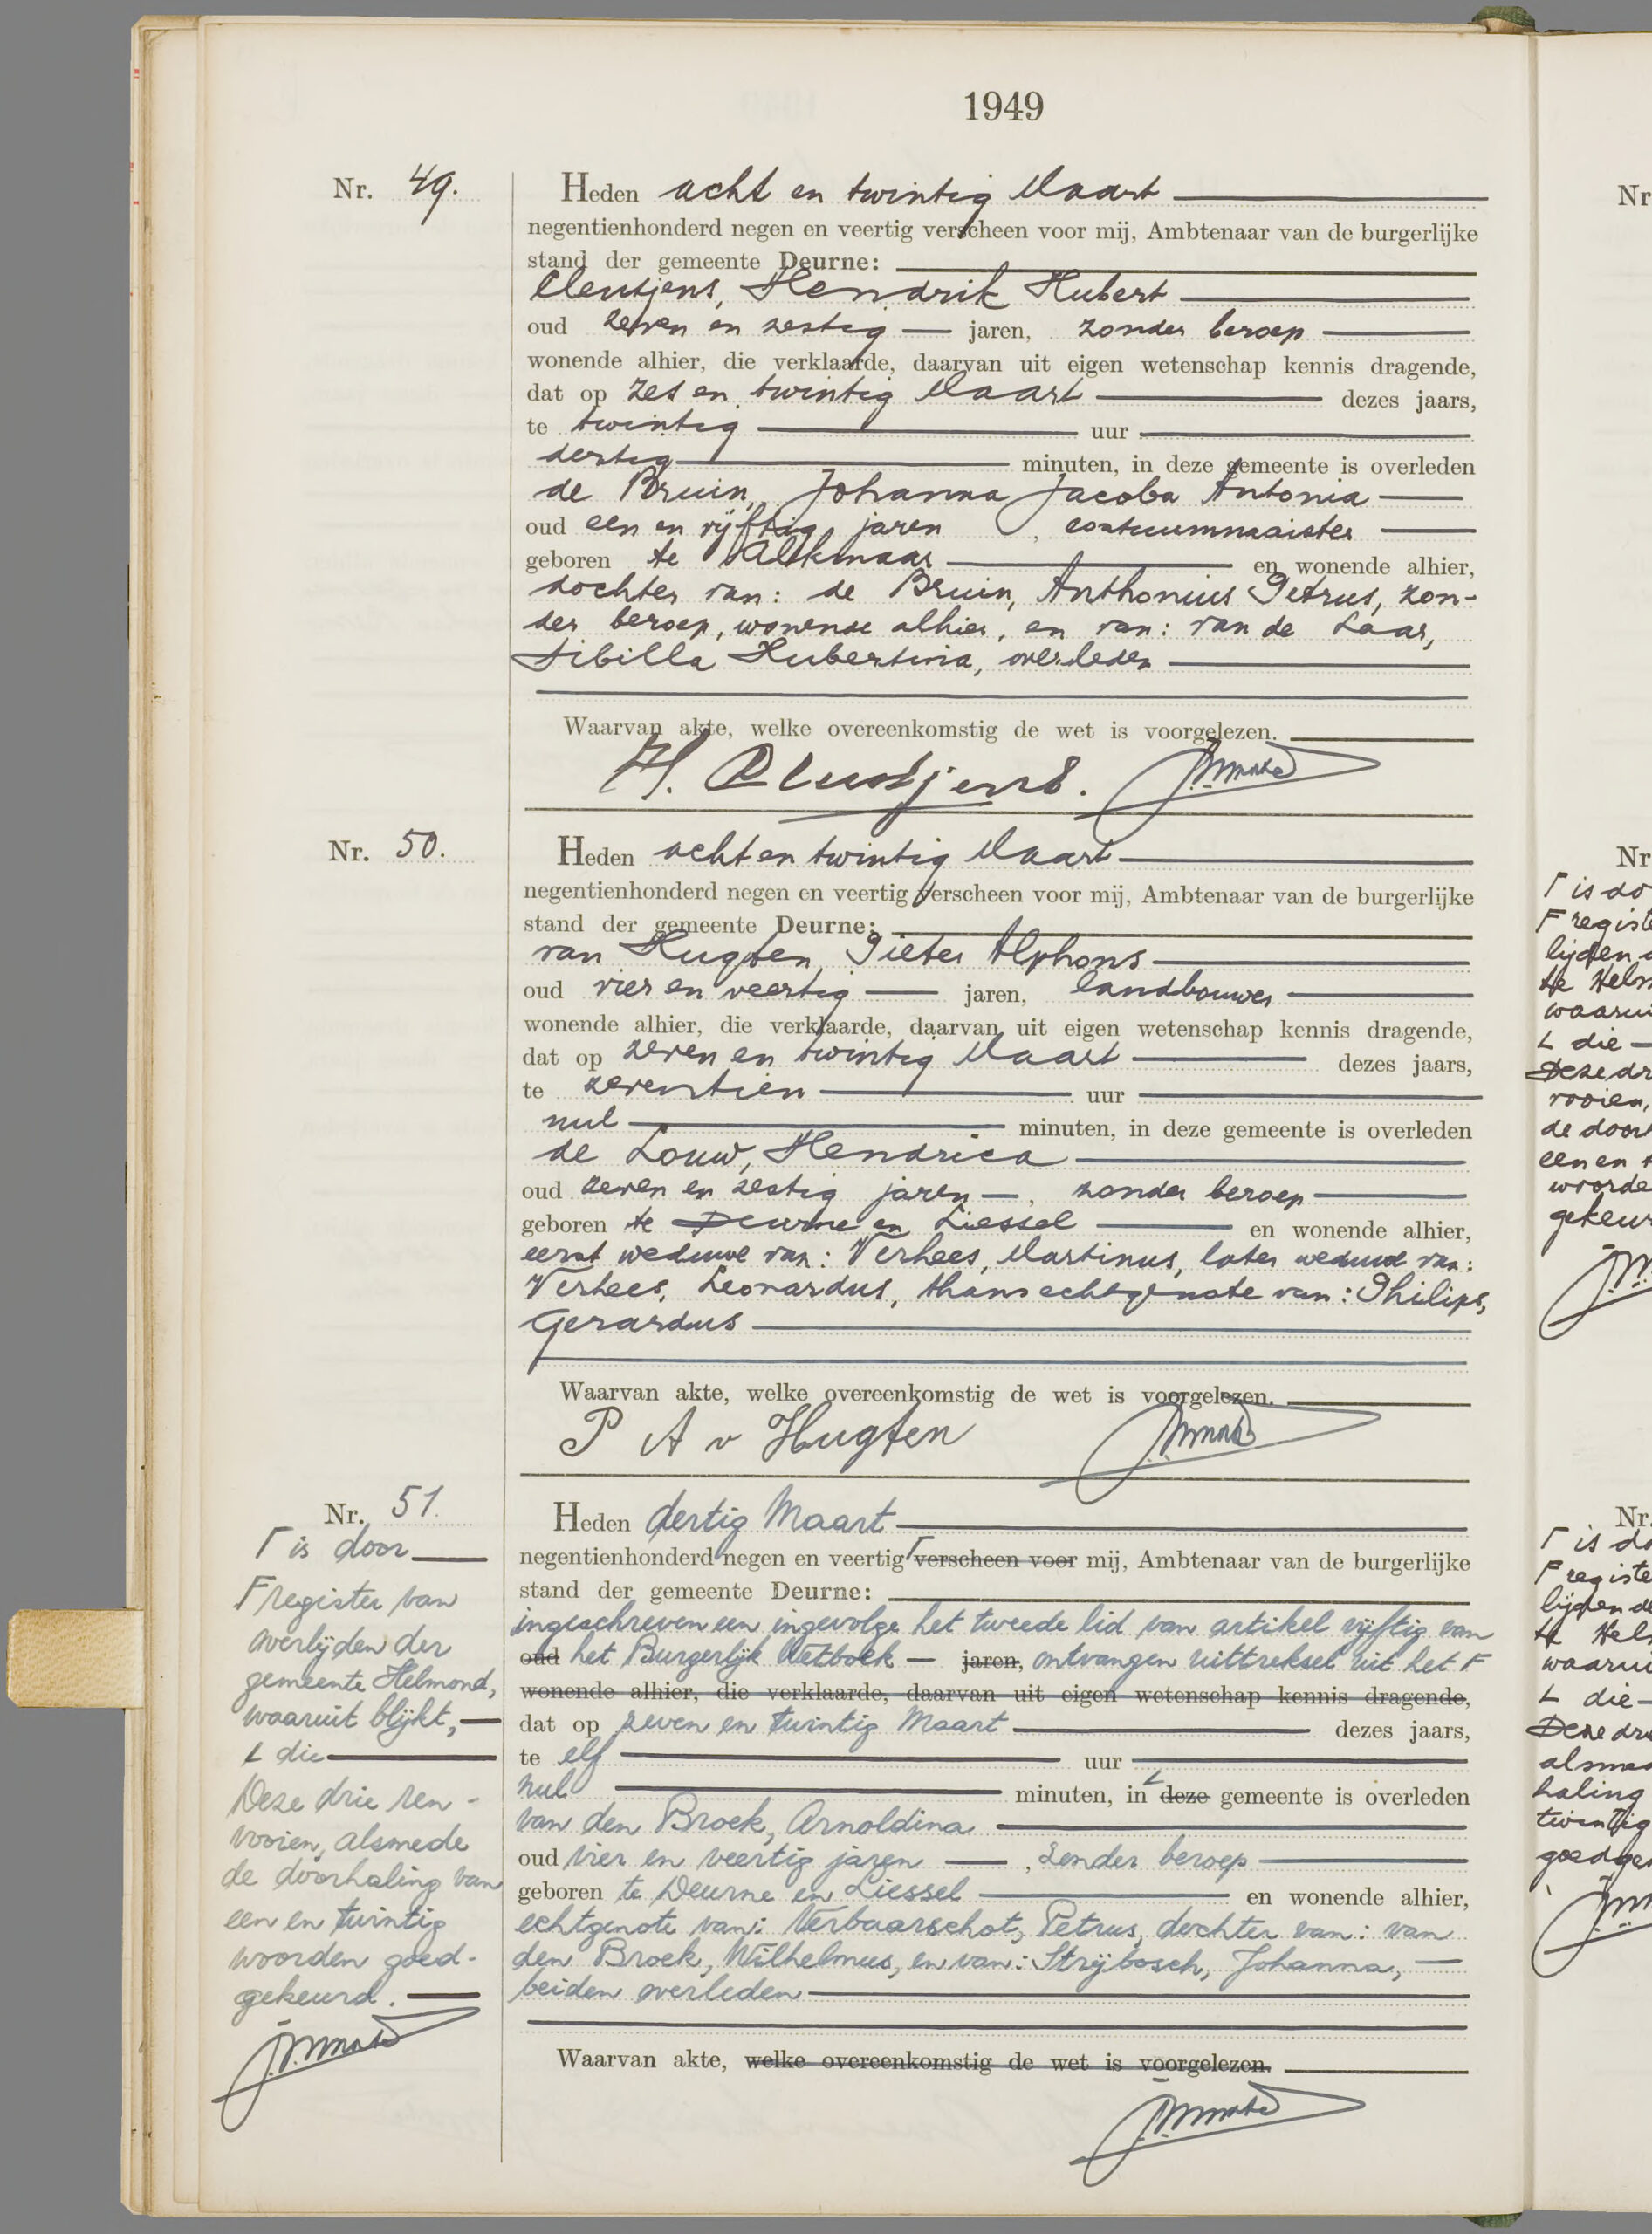 1949
Nr. 49.
Heden acht en twintig Maart
negentienhonderd negen en veertig verscheen voor mij, Ambtenaar van de burgerlijke
stand der gemeente Deurne:
Clentjens, Hendrik Hubert
oud zeven en zestig jaren, zonder beroep
wonende alhier, die verklaarde, daarvan uit eigen wetenschap kennis dragende,
dat op zes en twintig Maart dezes jaars,
te twintig uur
dertig minuten, in deze gemeente is overleden
de Bruin, Johanna Jacoba Antonia
oud een en vijftig jaren, costuumnaaister
geboren te Alkmaar en wonende alhier,
dochter van: de Bruin, Anthonius Petrus, zon-
der beroep, wonende alhier, en van: van de Laar,
Sibilla Hubertina, overleden
Waarvan akte, welke overeenkomstig de wet is voorgelezen.
Nr. 50.
Heden acht en twintig Maart
negentienhonderd negen en veertig verscheen voor mij, Ambtenaar van de burgerlijke
stand der gemeente Deurne:
van Hugten, Pieter Alphons
oud vier en veertig jaren, landbouwer
wonende alhier, die verklaarde, daarvan uit eigen wetenschap kennis dragende,
dat op zeven en twintig Maart dezes jaars,
te zeventien uur
nul minuten, in deze gemeente is overleden
de Louw, Hendrica
oud zeven en zestig jaren, zonder beroep
geboren te Deurne en Liessel en wonende alhier,
eerst weduwe van: Verhees, Martinus, later weduwe van:
Verhees, Leonardus, thans echtgenote van: Philips,
Gerardus
Waarvan akte, welke overeenkomstig de wet is voorgelezen.
P A v Hugten
Nr. 51.
Heden dertig Maart
negentienhonderd negen en veertig ┌ verscheen voor mij, Ambtenaar van de burgerlijke
stand der gemeente Deurne:
ingeschreven een ingevolge het tweede lid van artikel vijftig van
oud het Burgerlijk Wetboek — jaren, ontvangen uittreksel uit het F
wonende alhier, die verklaarde, daarvan uit eigen wetenschap kennis dragende,
dat op zeven en twintig Maart dezes jaars,
te elf uur
nul minuten, in L deze gemeente is overleden
van den Broek, Arnoldina
oud vier en veertig jaren, zonder beroep
geboren te Deurne en Liessel en wonende alhier,
echtgenote van: Verbaarschot, Petrus, dochter van: van
den Broek, Wilhelmus, en van: Strijbosch, Johanna,
beiden overleden
Waarvan akte, welke overeenkomstig de wet is voorgelezen.
┌ is door
F register van
overlijden der
gemeente Helmond,
waaruit blijkt,
L die
Deze drie ren-
vooien, alsmede
de doorhaling van
een en twintig
woorden goed-
gekeurd.
Nr
┌ is do
F registe
lijden d
te Helm
waarui
L die
Deze dr
vooien,
de door
een en t
woorde
gekeur
Nr.
┌ is do
F registe
lijden de
te Hel
waarui
L die
Deze dri
alsme
haling
twintig
goedge